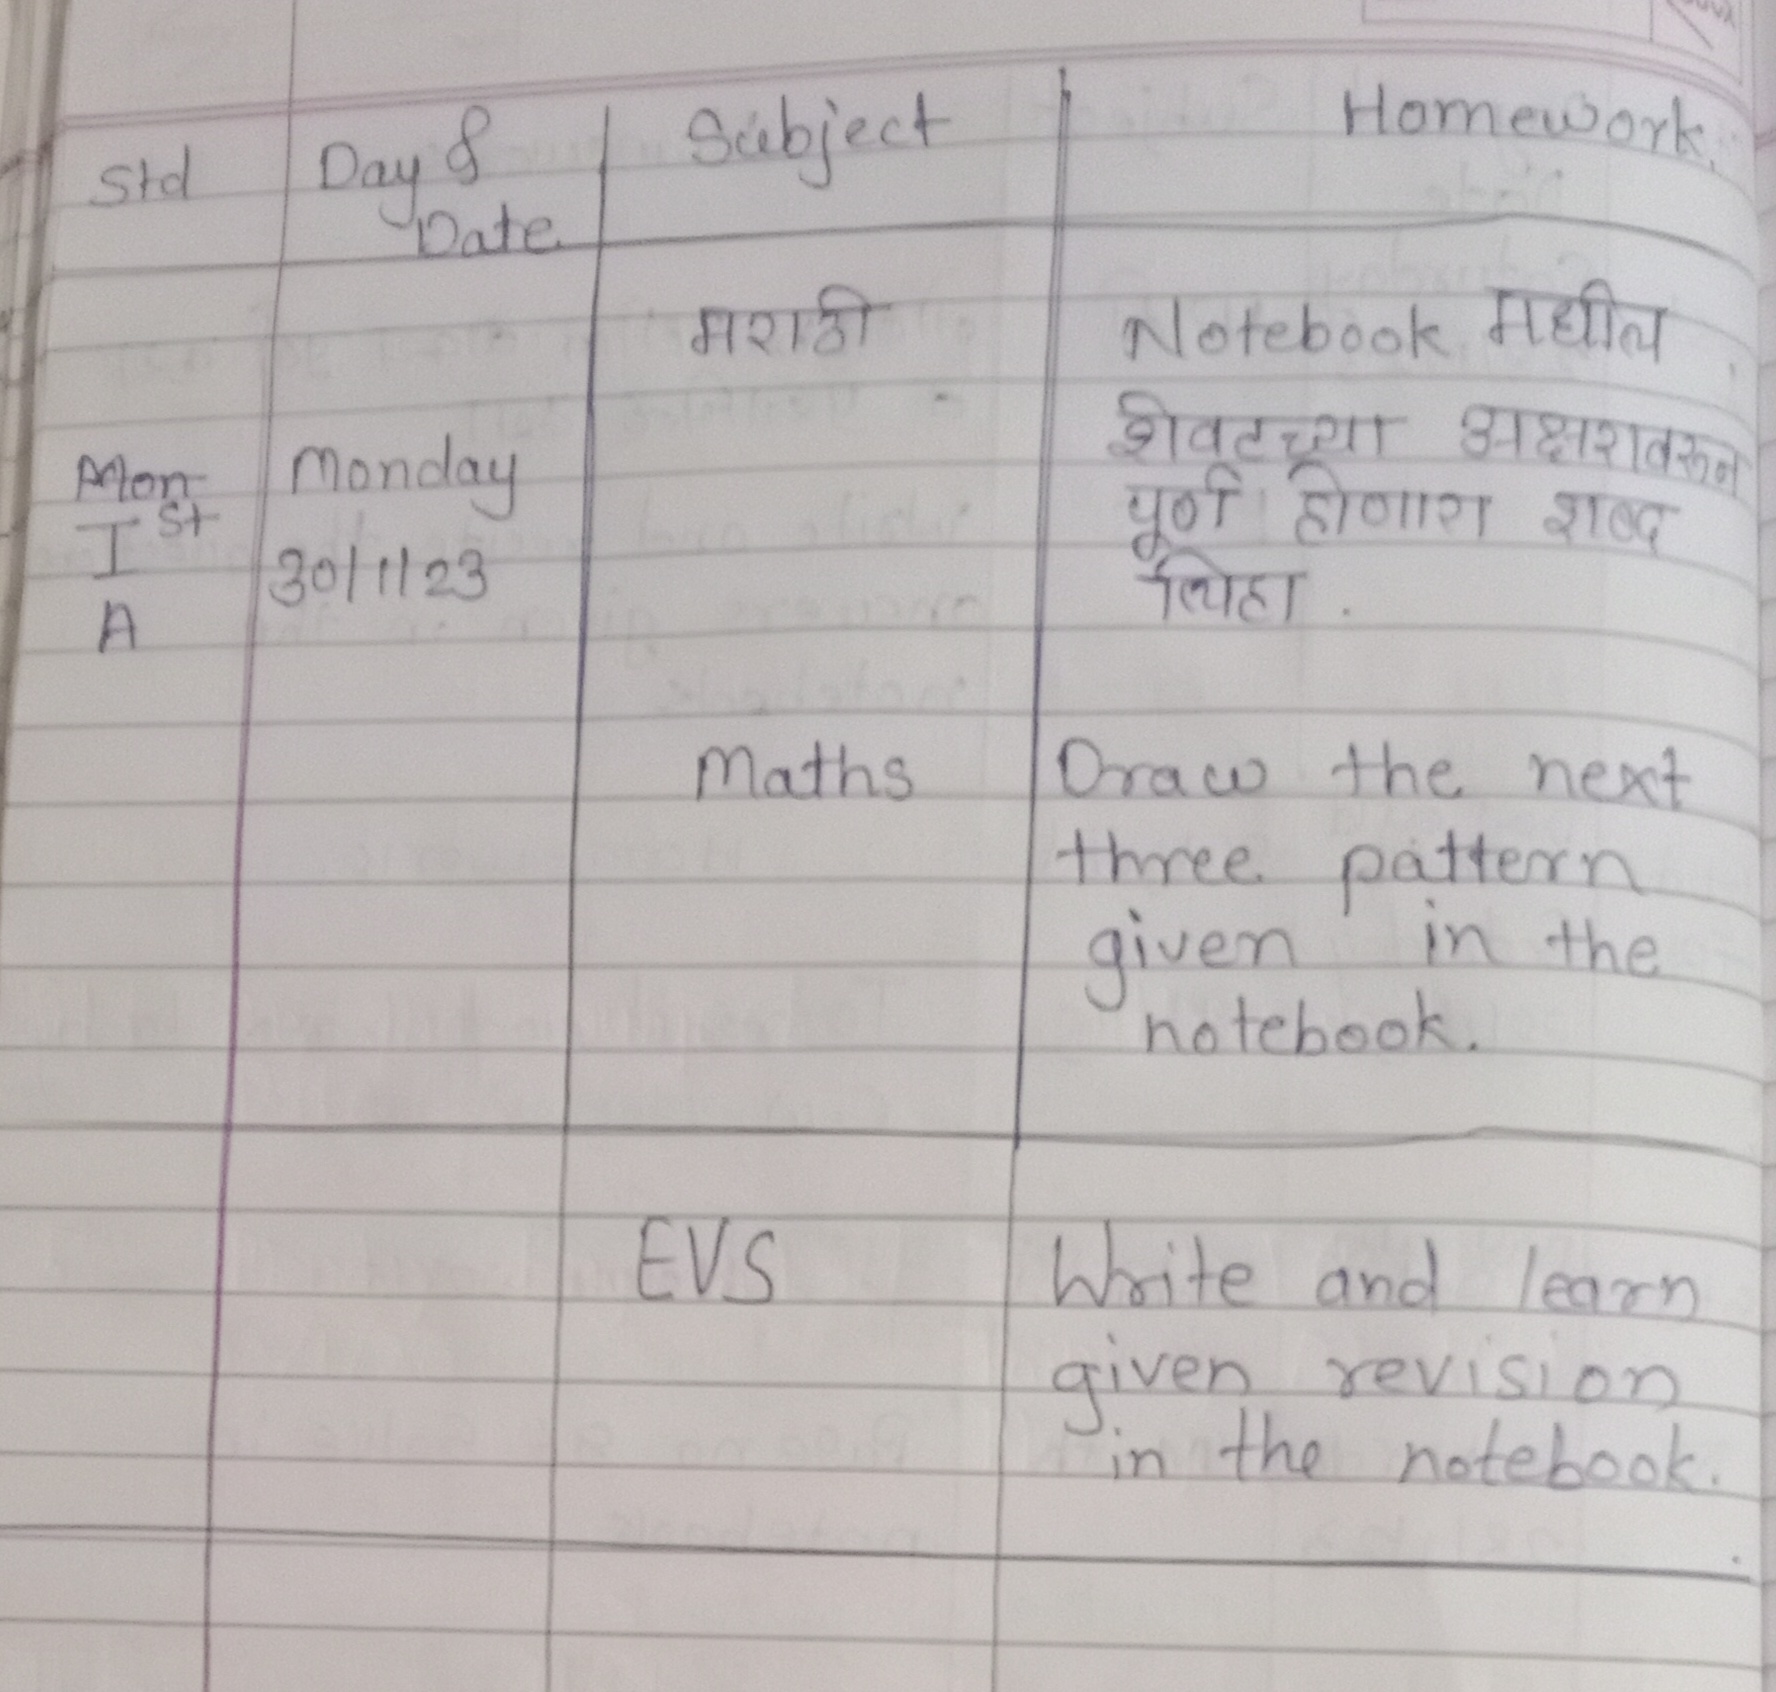 Std Day & Subject Homework.
Date
मराठी Notebook मधील
शेवटच्या अक्षरावरून
Mon Monday पूर्ण होणारा शब्द
Ist 30/1/23 लिहा.
A
Maths Draw the next
three pattern
given in the
notebook.
EVS Write and learn
given revision
in the notebook.